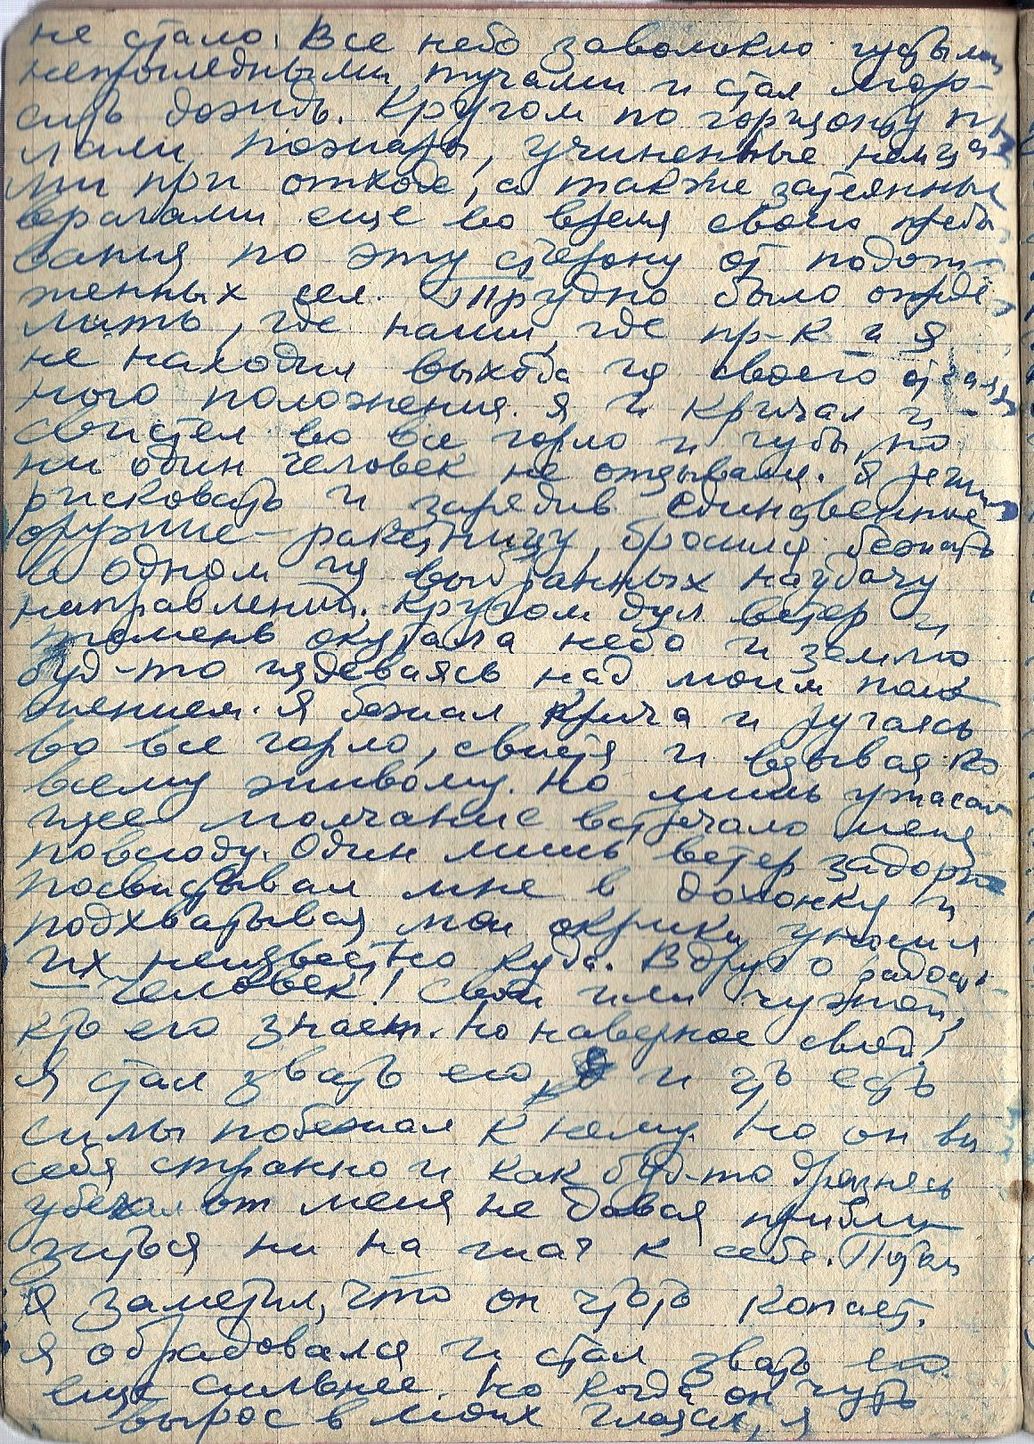 не стало. Все небо заволокло густыми
непроглядными тучами и стал моро-
сить дождь. Кругом по горизонту пы
лали пожары, учиненные немца
ми при отходе, а также затеянные
врагами еще во время своего пребы
вания по эту сторону от подож-
женных сел. Трудно было опреде
лить, где наши, где пр-к и я
не находил выхода из своего отчаян
ного положения. Я и кричал и
свистел во все горло и губы, но
ни один человек не отзывался. Я решил
рисковать и зарядив единственное
оружие – ракетницу, бросился бежать
в одном из выбранных наудачу
направлений. Кругом дул ветер и
темень окутала небо и землю
буд-то издеваясь над моим поло
жением. Я бежал крича и ругаясь
во все горло, свистя и взывая ко
всему живому. Но лишь ужасаю
щее молчание встречало меня
повсюду. Один лишь ветер задорно
посвистывал мне в догонку и
подхватывая мои окрики уносил
их неизвестно куда. Вдруг о радость
– человек! Свой или чужой,
кто его знает. Но наверное свой!
Я стал звать его, и что есть
силы побежал к нему. Но он вел
себя странно и как буд-то дразнясь
убежал от меня не давая прибли-
зиться ни на шаг к себе.
Я заметил, что он что-то копает.
Я обрадовался и стал звать его
еще сильнее. Но когда он чуть
вырос в моих глазах, я